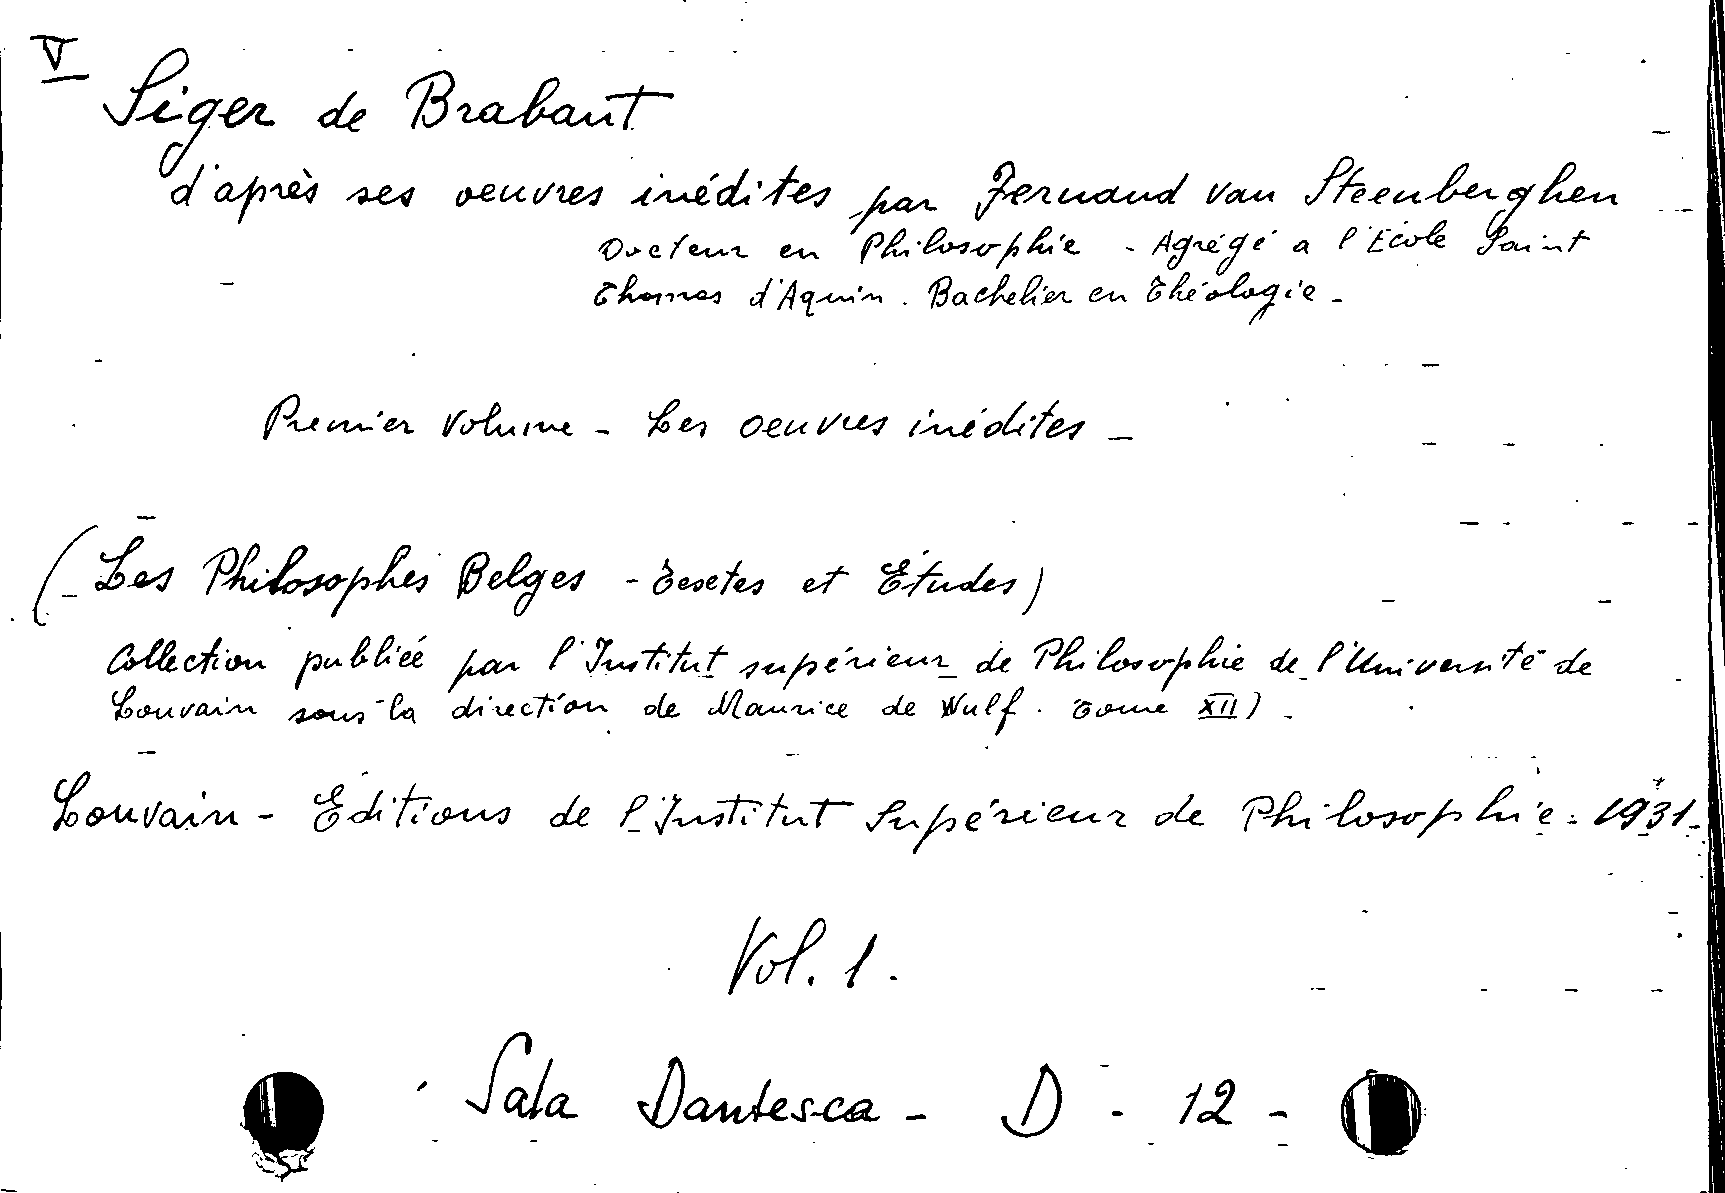 V
Siger de Brabant
d'après ses oeuvres inédites par Fernand van Steenberghen
Docteur en Philosophie - Agrégé a l'Ecole Saint
Thomas d'Aquin. Bachelier en Théologie -
Premier Volume - Les oeuvres inédites -
(Les Philosophes Belges - Textes et Études)
Collection publiée par l'Institut supérieur de Philosophie de l'Université de
Louvain sous la direction de Maurice de Wulf. Tome XII) -
Louvain - Editions de l'Institut Supérieur de Philosophie - 1931 -
Vol. 1.
Sala Dantesca - D - 12 -